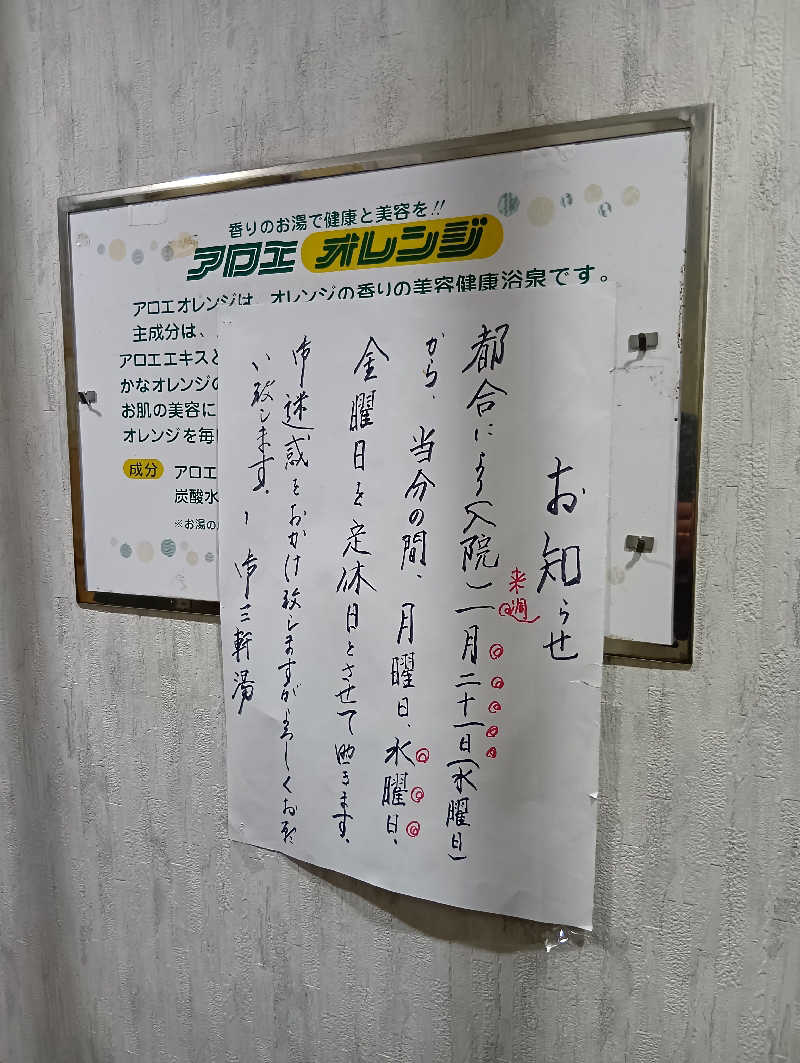 香りのお湯で健康と美容を!!
アロエ オレンジ
アロエオレンジは、オレンジの香りの美容健康浴泉です。
主成分は、
アロエエキスと
かなオレンジの
お肌の美容に
オレンジを毎
成分 アロエ
炭酸水
※お湯の
お知らせ
都合により入院)一月二十一日(水曜日)
来週
から、当分の間、月曜日、水曜日、
金曜日を定休日とさせて頂きます。
御迷惑をおかけ致しますがよろしくお願
い致します。
御三軒湯